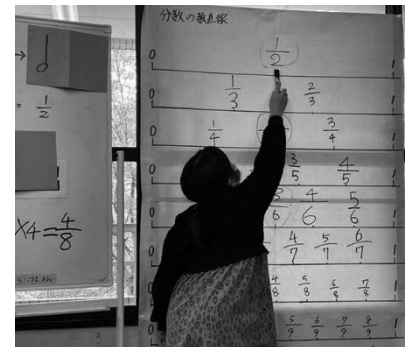 分数の数直線
= 1/2
×4=4/8
0 1/2 1
0 1/3 2/3 1
0 1/4 3/4 1
0 3/5 4/5 1
0 3/6 4/6 5/6 1
0 4/7 5/7 6/7 1
0 4/8 5/8 6/8 7/8 1
0 5/9 6/9 7/9 8/9 1